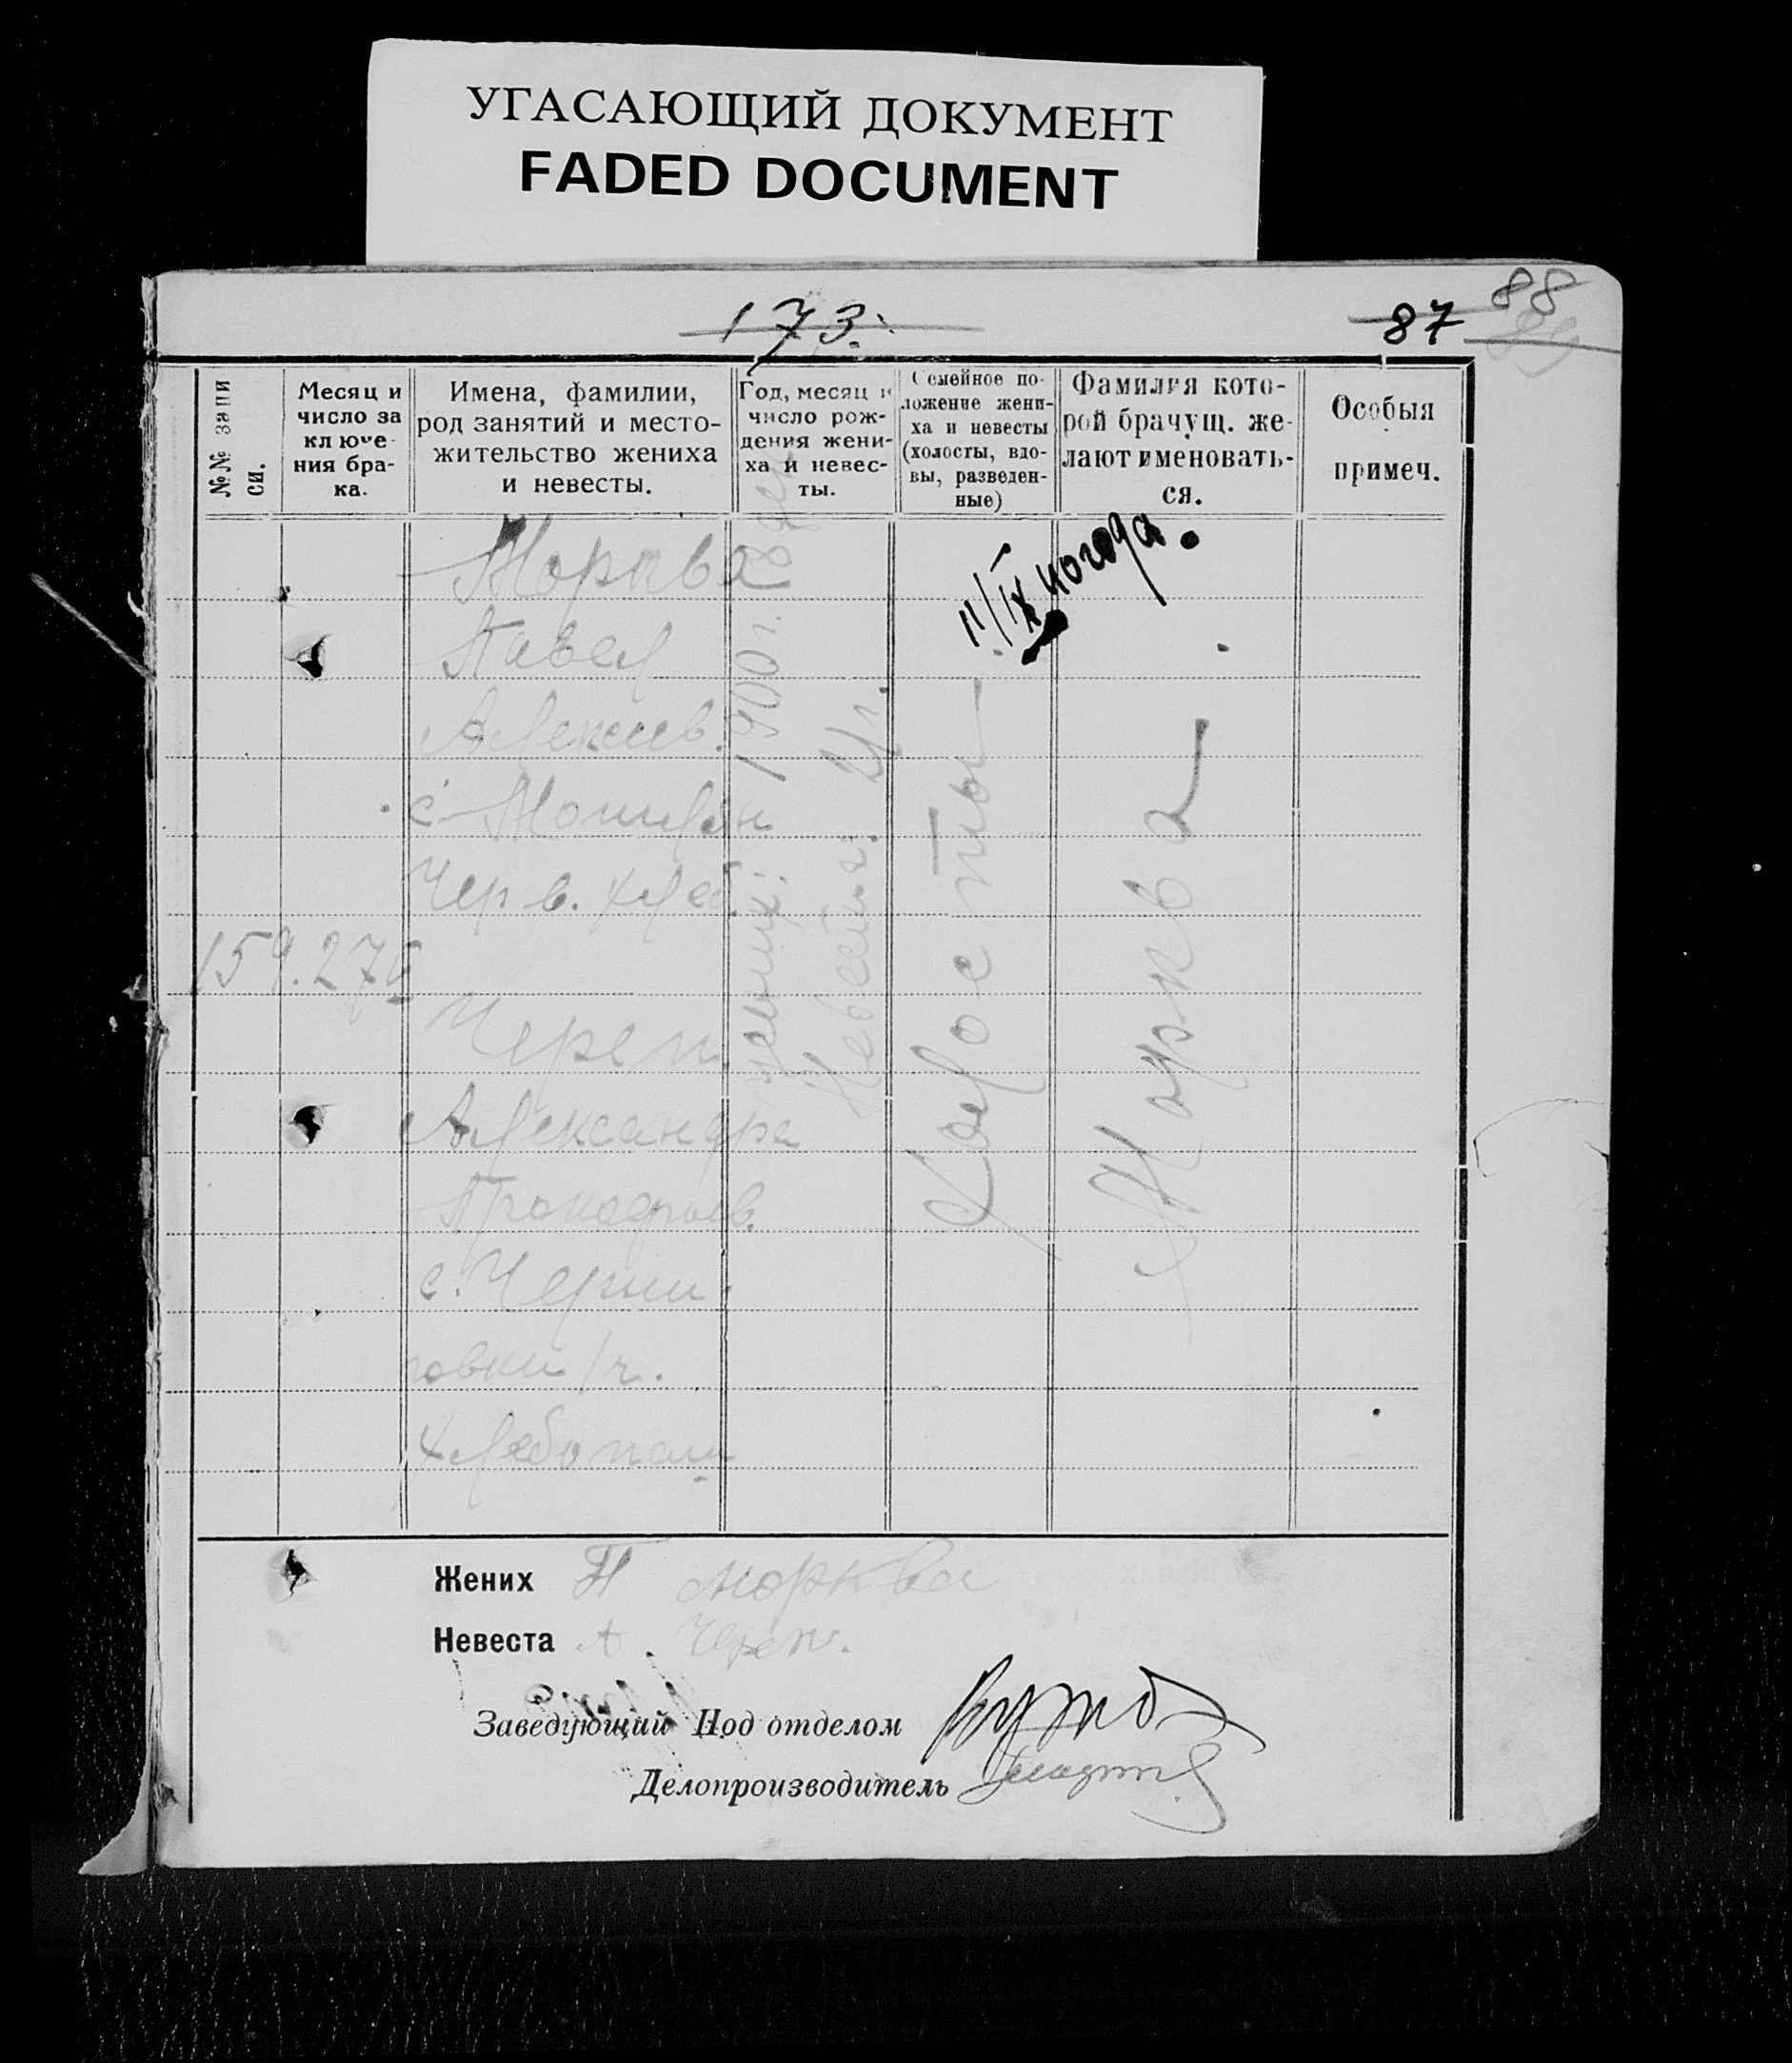 УГАСАЮЩИЙ ДОКУМЕНТ
FADED DOCUMENT
173.
87
88
№№ запи
си.
Месяц и
число за
ключе-
ния бра-
ка.
Имена, фамилии,
род занятий и место-
жительство жениха
и невесты.
Год, месяц и
число рож-
дения жени-
ха и невес-
ты.
Семейное по-
ложение жени-
ха и невесты
(холосты, вдо-
вы, разведен-
ные)
Фамилия кото-
рой брачущ. же-
лают именовать-
ся.
Особыя
примеч.
Морква
Павел
Алексеев.
Черв. хлеб.
159.
Череп.
Александра
Прокофьев.
с. Черни.
говки
хлебопаш
жених: 1900 г.
Невеста:
Холосты
Морква
11/IX
Жених П Морква
Невеста А. Череп.
Заведующий Под отделом
Делопроизводитель